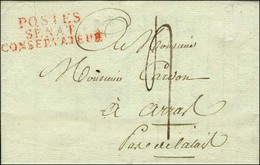 POSTES
SENAT
CONSERVATEUR
A Monsieur
Monsieur Cardon
à Arras
Pas de Calais